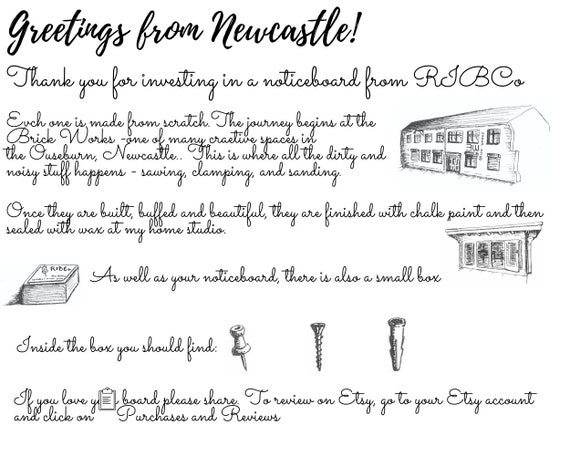 Greetings from Newcastle!
Thank you for investing in a noticeboard from RIBCo
Evch one is made from scratch. The journey begins at the
Brick Works -one of many craetive spaces in
the Ouseburn, Newcastle.. This is where all the dirty and
noisy stuff happens - sawing, clamping, and sanding.
Once they are built, buffed and beautiful, they are finished with chalk paint and then
sealed with wax at my home studio.
As well as your noticeboard, there is also a small box
Inside the box you should find:
If you love board please share. To review on Etsy, go to your Etsy account
and click on Purchases and Reviews